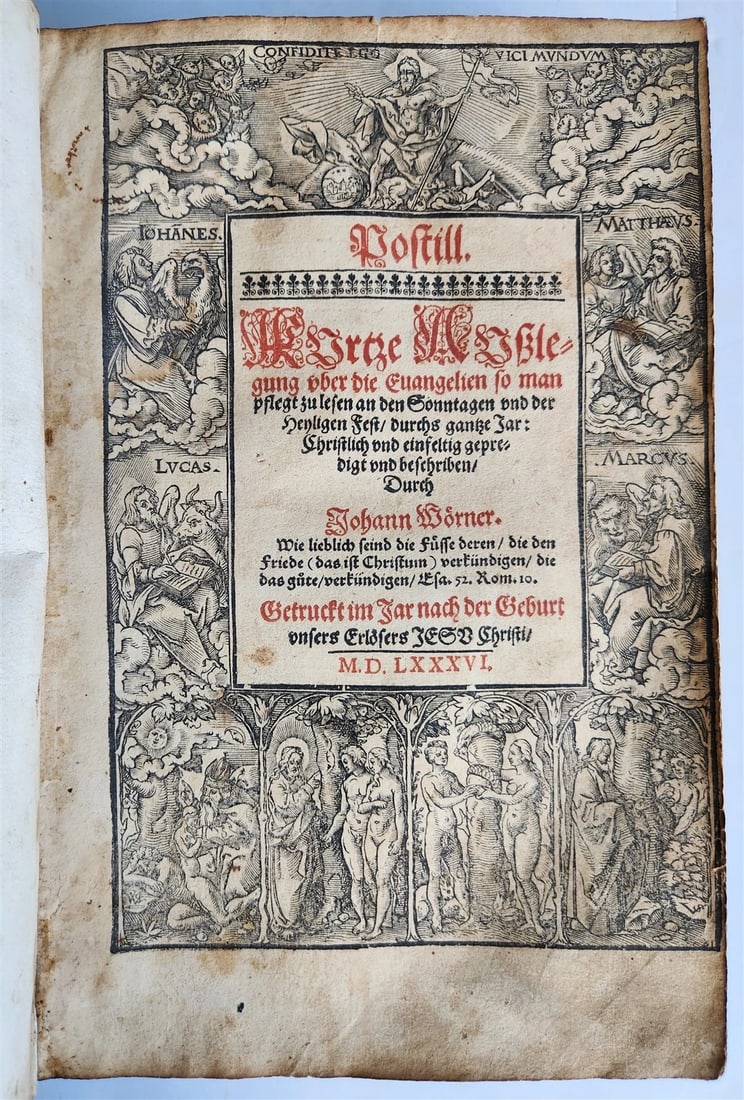 CONFIDITE EGO VICI MUNDVM
IOHĀNES.
MATTHÆVS.
LVCAS.
MARCVS.
Postill.
KUrtze AUßle-
gung vber die Euangelien so man
pflegt zu lesen an den Sonntagen vnd der
Heyligen Fest/ durchs gantze Jar:
Christlich vnd einfeltig gepre-
digt vnd beschriben/
Durch
Johann Wörner.
Wie lieblich seind die Füsse deren/ die den
Friede (das ist Christum) verkündigen/ die
das güte/ verkündigen/ Esa. 52. Rom. 10.
Getruckt im Jar nach der Geburt
vnsers Erlösers JESV Christi/
M. D. LXXXVI.